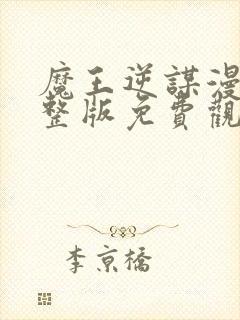 魔王逆謀漫
整版免費觀
李京橋